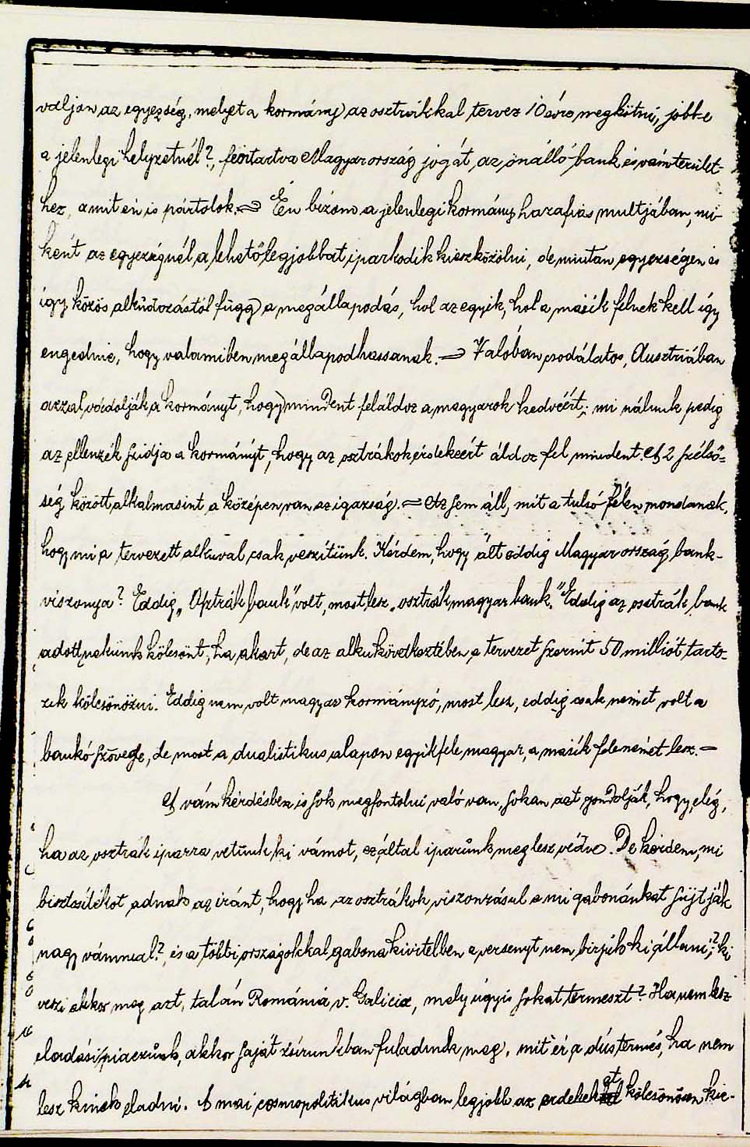 valjon az egyezség, melyet a kormány az osztrákkal tervez 10 évre megkötni, jobb-e
a jelenlegi helyzetnél?, fentartva Magyarország jogát, az önálló bank és vámterület-
hez, amit én is pártolok. = Én bízom a jelenlegi kormány hazafias multjában, mi-
ként az egyezségnél, a lehető legjobbat iparkodik kieszközölni, de miután egyezségen és
így közös alkudozástól függ a megállapodás, hol az egyik, hol a másik félnek kell így
engednie, hogy valamiben megállapodhassanak. = Valóban csodálatos, Ausztriában
azzal vádolják a kormányt, hogy mindent feláldoz a magyarok kedveért; mi nálunk pedig
az ellenzék szidja a kormányt, hogy az osztrákok érdekeért áldoz fel mindent. A 2 szélső-
ség között, alkalmasint a középen van az igazság. = Az sem áll, mit a tulsó félen mondanak,
hogy mi a tervezett alkuval csak veszítünk. Kérdem, hogy állt eddig Magyarország bank-
viszonya? Eddig „Osztrák bank" volt, most lesz „osztrák magyar bank." Eddig az osztrák bank
adott nekünk kölcsönt, ha akart, de az alku következtében a tervezet szerint 50 milliót tarto-
zik kölcsönözni. Eddig nem volt magyar kormányzó, most lesz, eddig csak német volt a
bankó szövege, de most a dualistikus alapon egyik fele magyar, a másik fele német lesz. =
A vám kérdésben is sok megfontolni való van, sokan azt gondolják, hogy elég,
ha az osztrák iparra vetünk ki vámot, ezáltal iparunk meg lesz védve. De kérdem, mi
biztosítékot adnak az iránt, hogy ha az osztrákok viszonzásul a mi gabonánkat sújtják
nagy vámmal?, és a többi országokkal gabona kivitelben a versenyt nem birjuk ki állani?; ki
veszi akkor meg azt, talán Románia v. Galicia, mely úgyis sokat termeszt? Ha nem lesz
eladási piaczunk, akkor saját zsírunkban fuladunk meg, mit ér a dús termés, ha nem
lesz kinek eladni. A mai cosmopolitikus világban legjobb az érdekeket kölcsönösen kie-